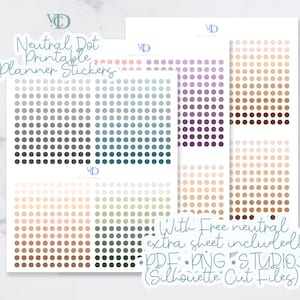 VCD
VCD
Neutral Dot
Printable
Planner Stickers
VCD
With Free neutral
extra sheet included
PDF • PNG • STUDIO
(Silhouette Cut Files)